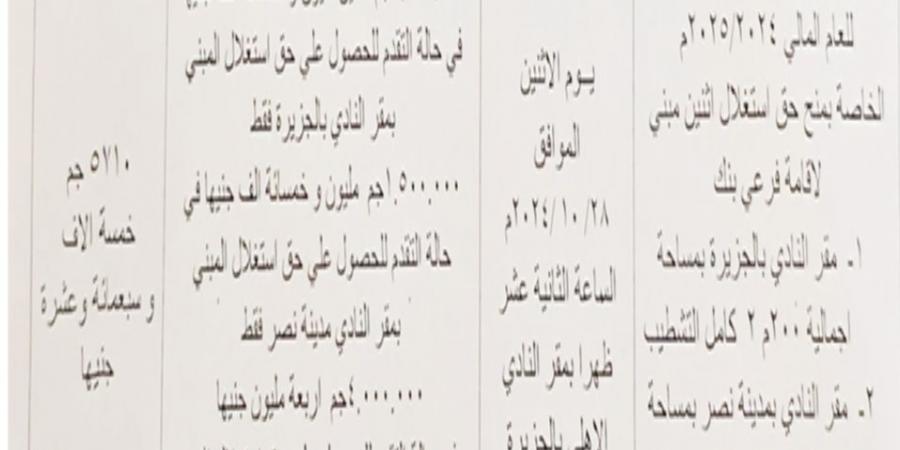 للعام المالي ٢٠٢٥/٢٠٢٤م
الخاصة بمنح حق استغلال اثنين مبني
لاقامة فرعي بنك
١- مقر النادي بالجزيرة بمساحة
اجمالية ٢٠٠م ٢ كامل التشطيب
٢- مقر النادي بمدينة نصر بمساحة
يوم الاثنين
الموافق
٢٠٢٤/١٠/٢٨م
الساعة الثانية عشر
ظهرا بمقر النادي
الاهلي بالجزيرة
في حالة التقدم للحصول علي حق استغلال المبني
بمقر النادي بالجزيرة فقط
١.٥٠٠.٠٠٠جم مليون و خمسائة الف جنيها في
حالة التقدم للحصول علي حق استغلال المبني
بمقر النادي مدينة نصر فقط
٤.٠٠٠.٠٠٠جم اربعة مليون جنيها
٥٧١٠ جم
خمسة الاف
و سبعمائة وعشرة
جنيها